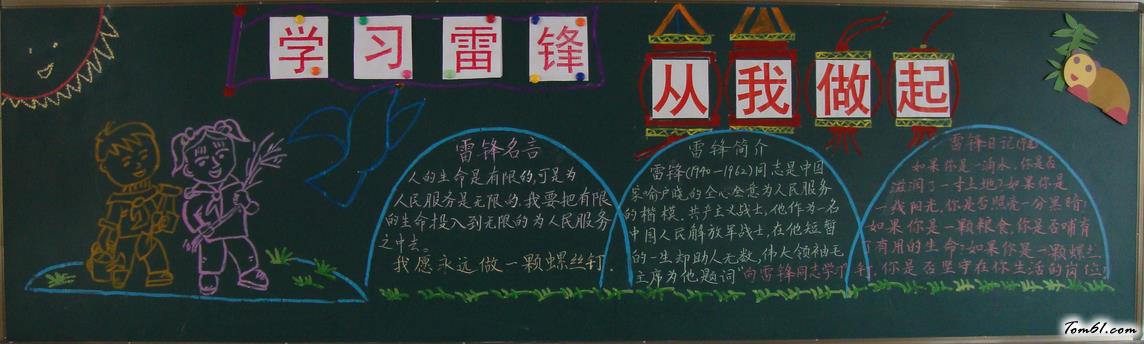 学习雷锋
从我做起
雷锋名言
人的生命是有限的,可是为
人民服务是无限的,我要把有限
的生命投入到无限的为人民服务
之中去。
我愿永远做一颗螺丝钉.
雷锋简介
雷锋(1940-1962)同志是中国
家喻户晓的全心全意为人民服务
的楷模、共产主义战士,他作为一名
中国人民解放军战士,在他短暂
的一生却助人无数,伟大领袖毛
主席为他题词“向雷锋同志学习
雷锋日记
如果你是一滴水,你是否
滋润了一寸土地?如果你是
一线阳光,你是否照亮一分黑暗?
如果你是一颗粮食,你是否哺育
有用的生命?如果你是一颗螺丝
钉,你是否坚守在你生活的岗位
Tom61.com